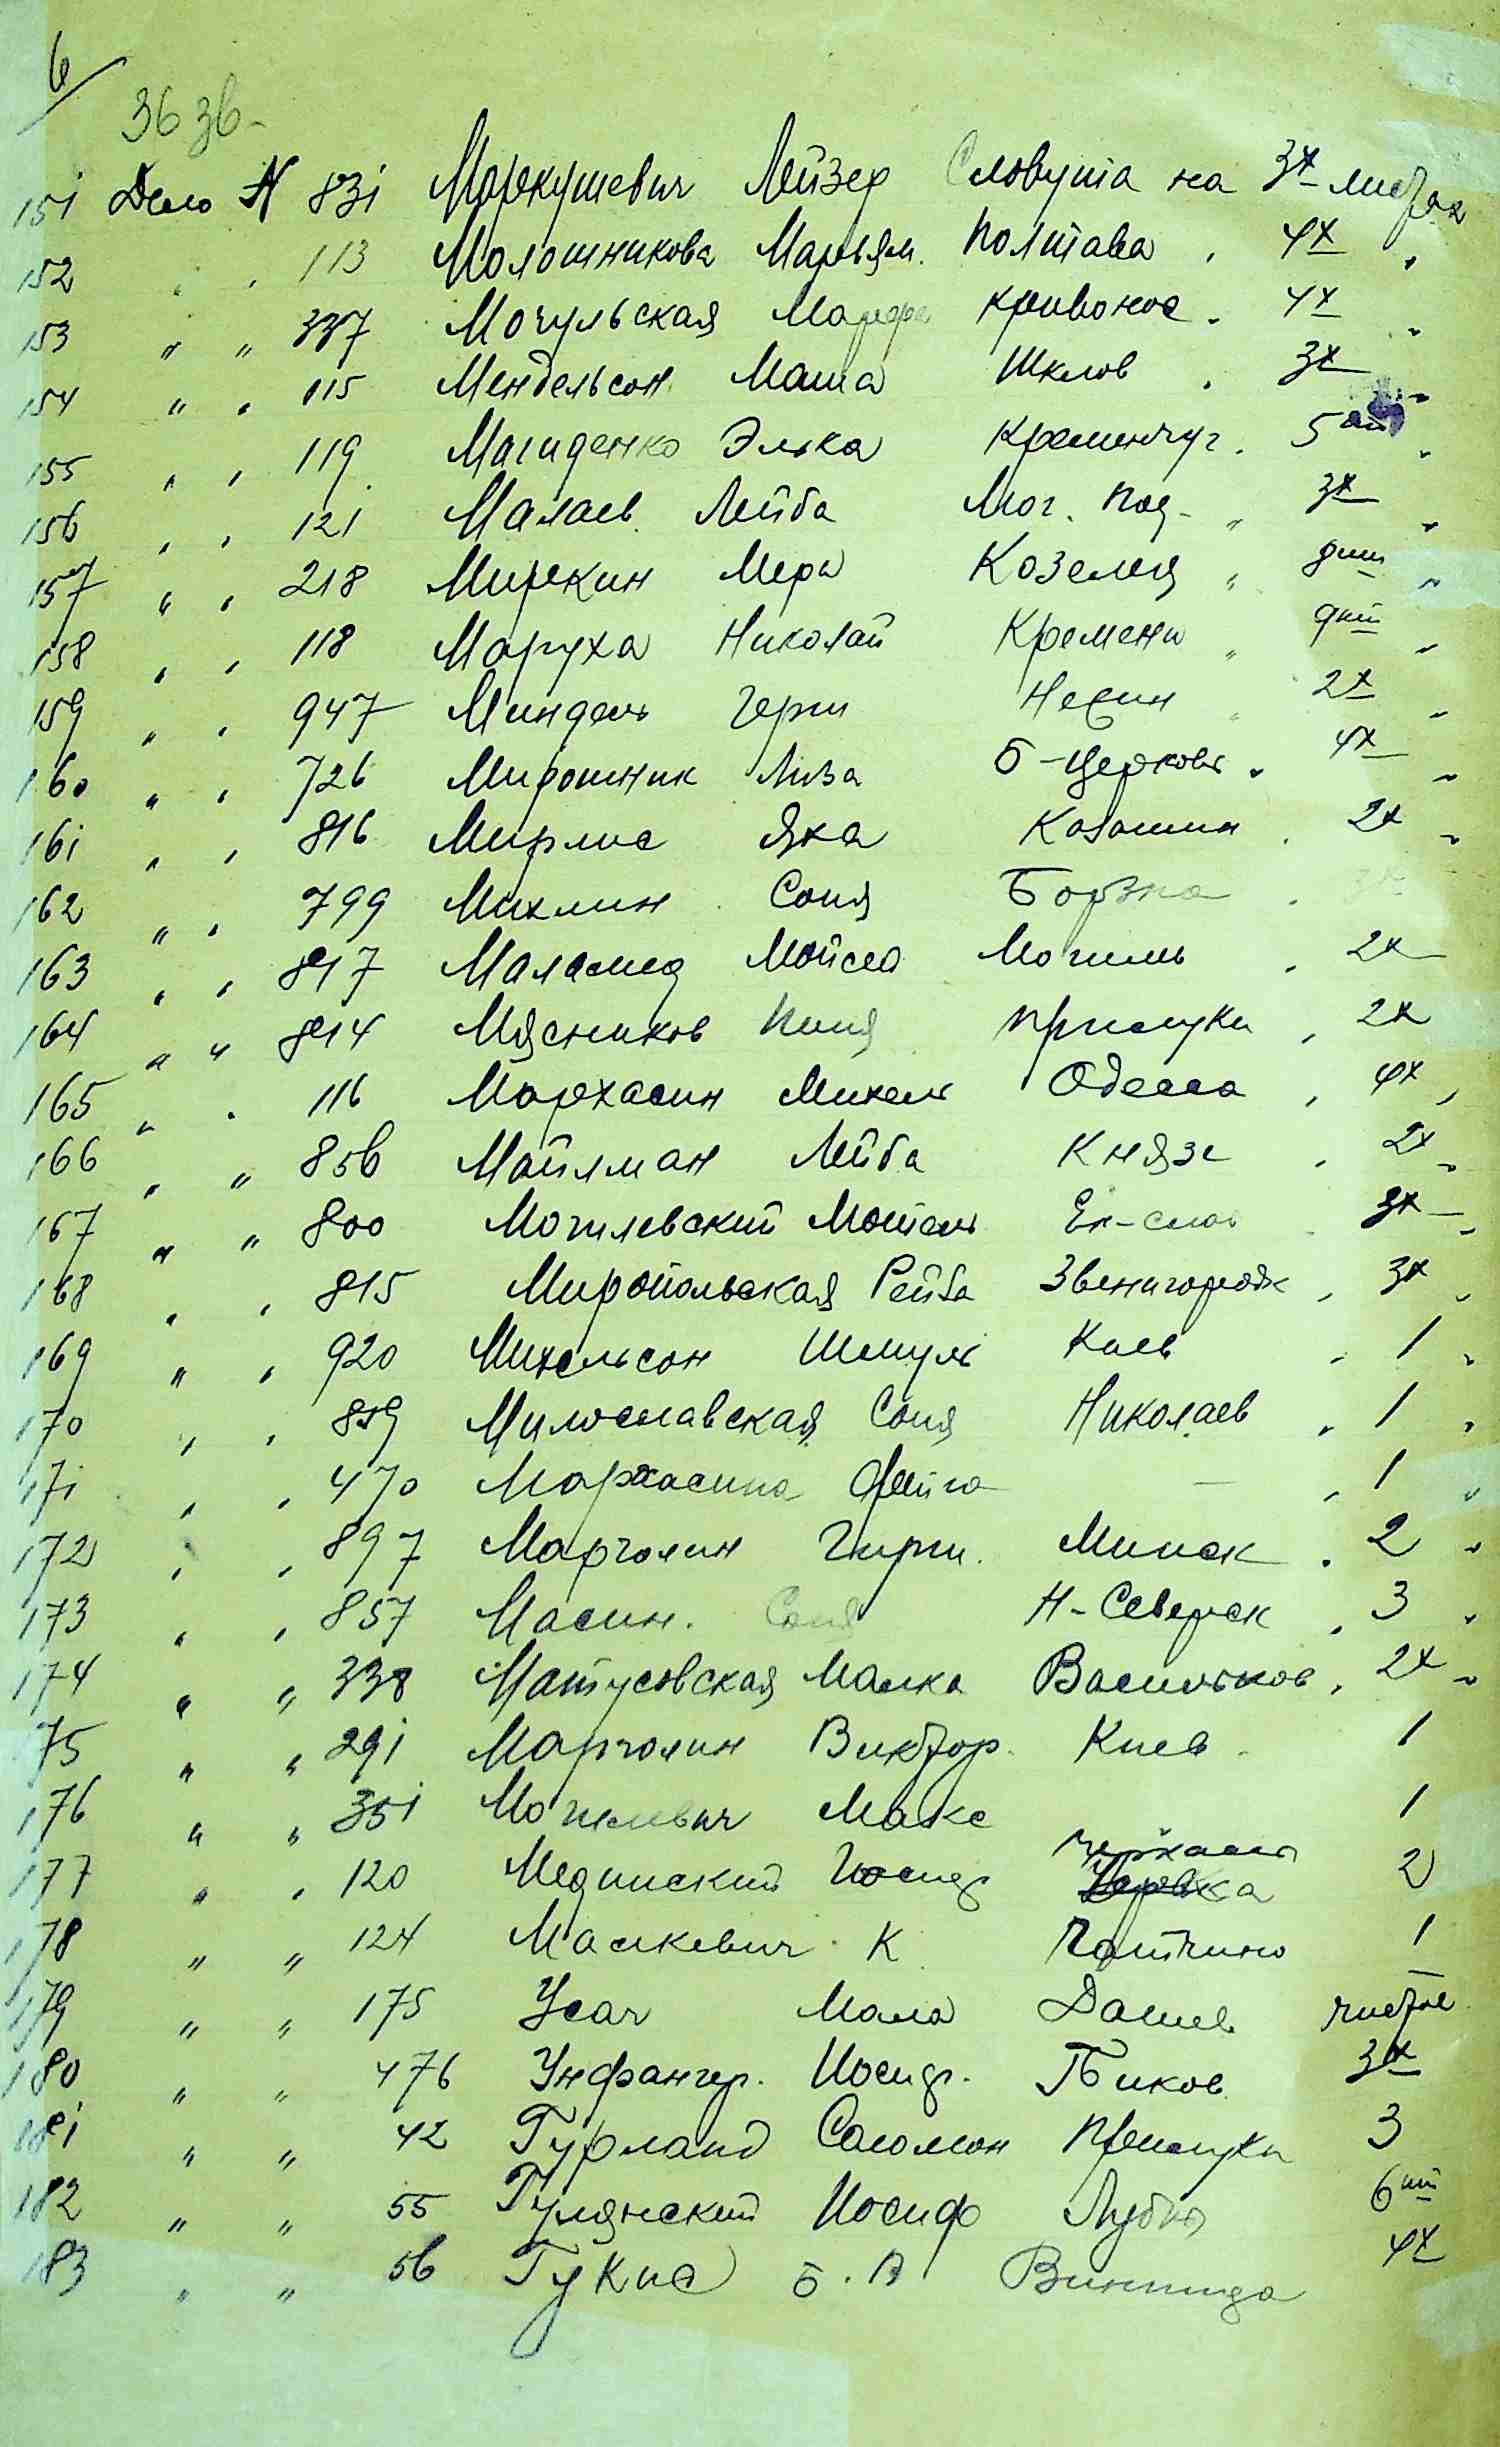 6
36 зв-
151 Дело N 831 Маркушевич Лейзер Славута на 3х листах
152 " " 113 Молошникова Марьям. Полтава " 4х "
153 " " 337 Мочульская Марфа Кривонос " 4х "
154 " " 115 Мендельсон Маша Шклов " 3х "
155 " " 119 Магиденко Элька Кременчуг " 5 ти "
156 " " 121 Малаев Лейба Мог. Под- " 3х "
157 " " 218 Миркин Мера Козелец " 8ми "
158 " " 118 Маруха Николай Кремени " 9ти "
159 " " 947 Миндель Герш Нежин " 2х "
160 " " 726 Мирошник Лиза Б-Церковь " 4х "
161 " " 816 Мирлис Яха Казатин " 2х "
162 " " 799 Михлин Соня Борзна "
163 " " 817 Маламед Мойсей Могиль " 2х
164 " " 814 Мясников Прилуки " 2х
165 " " 116 Мархасин Михель Одесса " 4х "
166 " " 856 Майлман Лейба Князе " 2х "
167 " " 800 Могилевский Мотель Ек-слав 3х "
168 " " 815 Миропольская Рейза Звенигородк " 3х "
169 " " 920 Михельсон Шмуль Киев " 1 "
170 " " 859 Милославская Соня Николаев " 1 "
171 " " 470 Мархасина Фейга — " 1 "
172 " " 897 Марголин Гирш. Минск " 2 "
173 " " 857 Масин. Соня Н-Северск " 3 "
174 " " 338 Матусовская Малка Васильков " 2х "
175 " " 291 Марголин Виктор. Киев 1
176 " " 351 Могилевич Макс 1
177 " " 120 Мединский Иосиф Черкассы 2
178 " " 124 Маскевич К Гатчино 1
179 " " 175 Усач Мала Дашев чистое
180 " " 476 Унфангер. Иосиф. Быков 3х
181 " " 42 Гурланд Соломон Прилуки 3
182 " " 55 Гулянский Иосиф Лубны 6ти
183 " " 56 Гукна Б. А Винница 4х